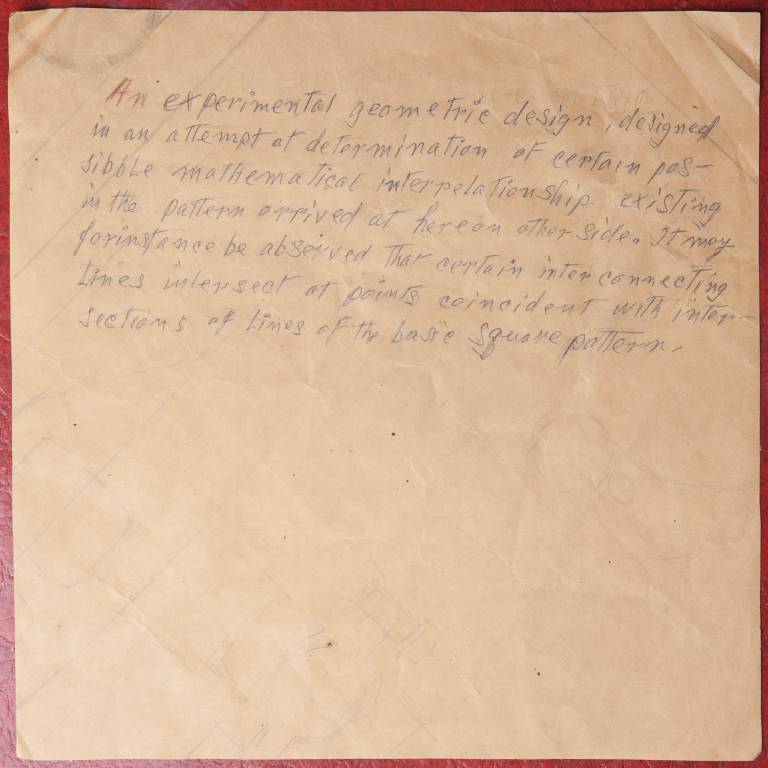 An experimental geometric design, designed
in an attempt at determination of certain pos-
sibble mathematical interpelationship existing
in the pattern arrived at hereon other side. It may
forinstance be observed that certain inter connecting
Lines intersect at points coincident with inter-
sections of Lines of the basic square pattern.